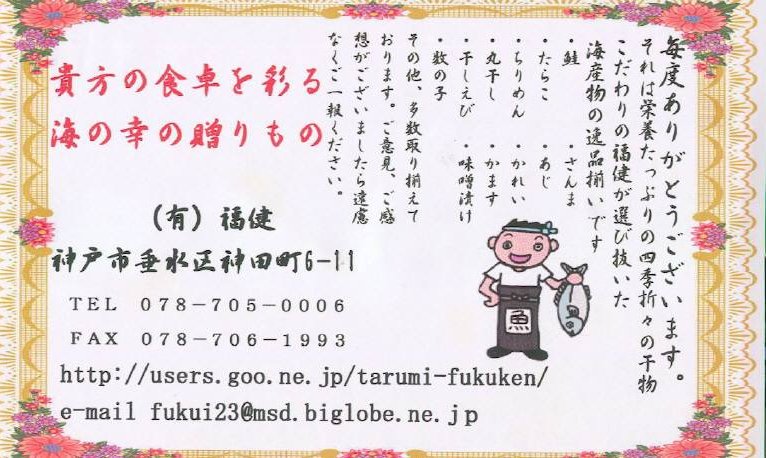 毎度ありがとうございます。
それは栄養たっぷりの四季折々の干物
こだわりの福健が選び抜いた
海産物の逸品揃いです
・鮭　・さんま
・たらこ　・あじ
・ちりめん　・かれい
・丸干し　・かます
・干しえび　・味噌漬け
・数の子
その他、多数取り揃えて
おります。ご意見、ご感
想がございましたら遠慮
なくご一報ください。
貴方の食卓を彩る
海の幸の贈りもの
（有）福健
神戸市垂水区神田町6-11
TEL 078－705－0006
FAX 078－706－1993
http://users.goo.ne.jp/tarumi-fukuken/
e-mail fukui23@msd.biglobe.ne.jp
魚